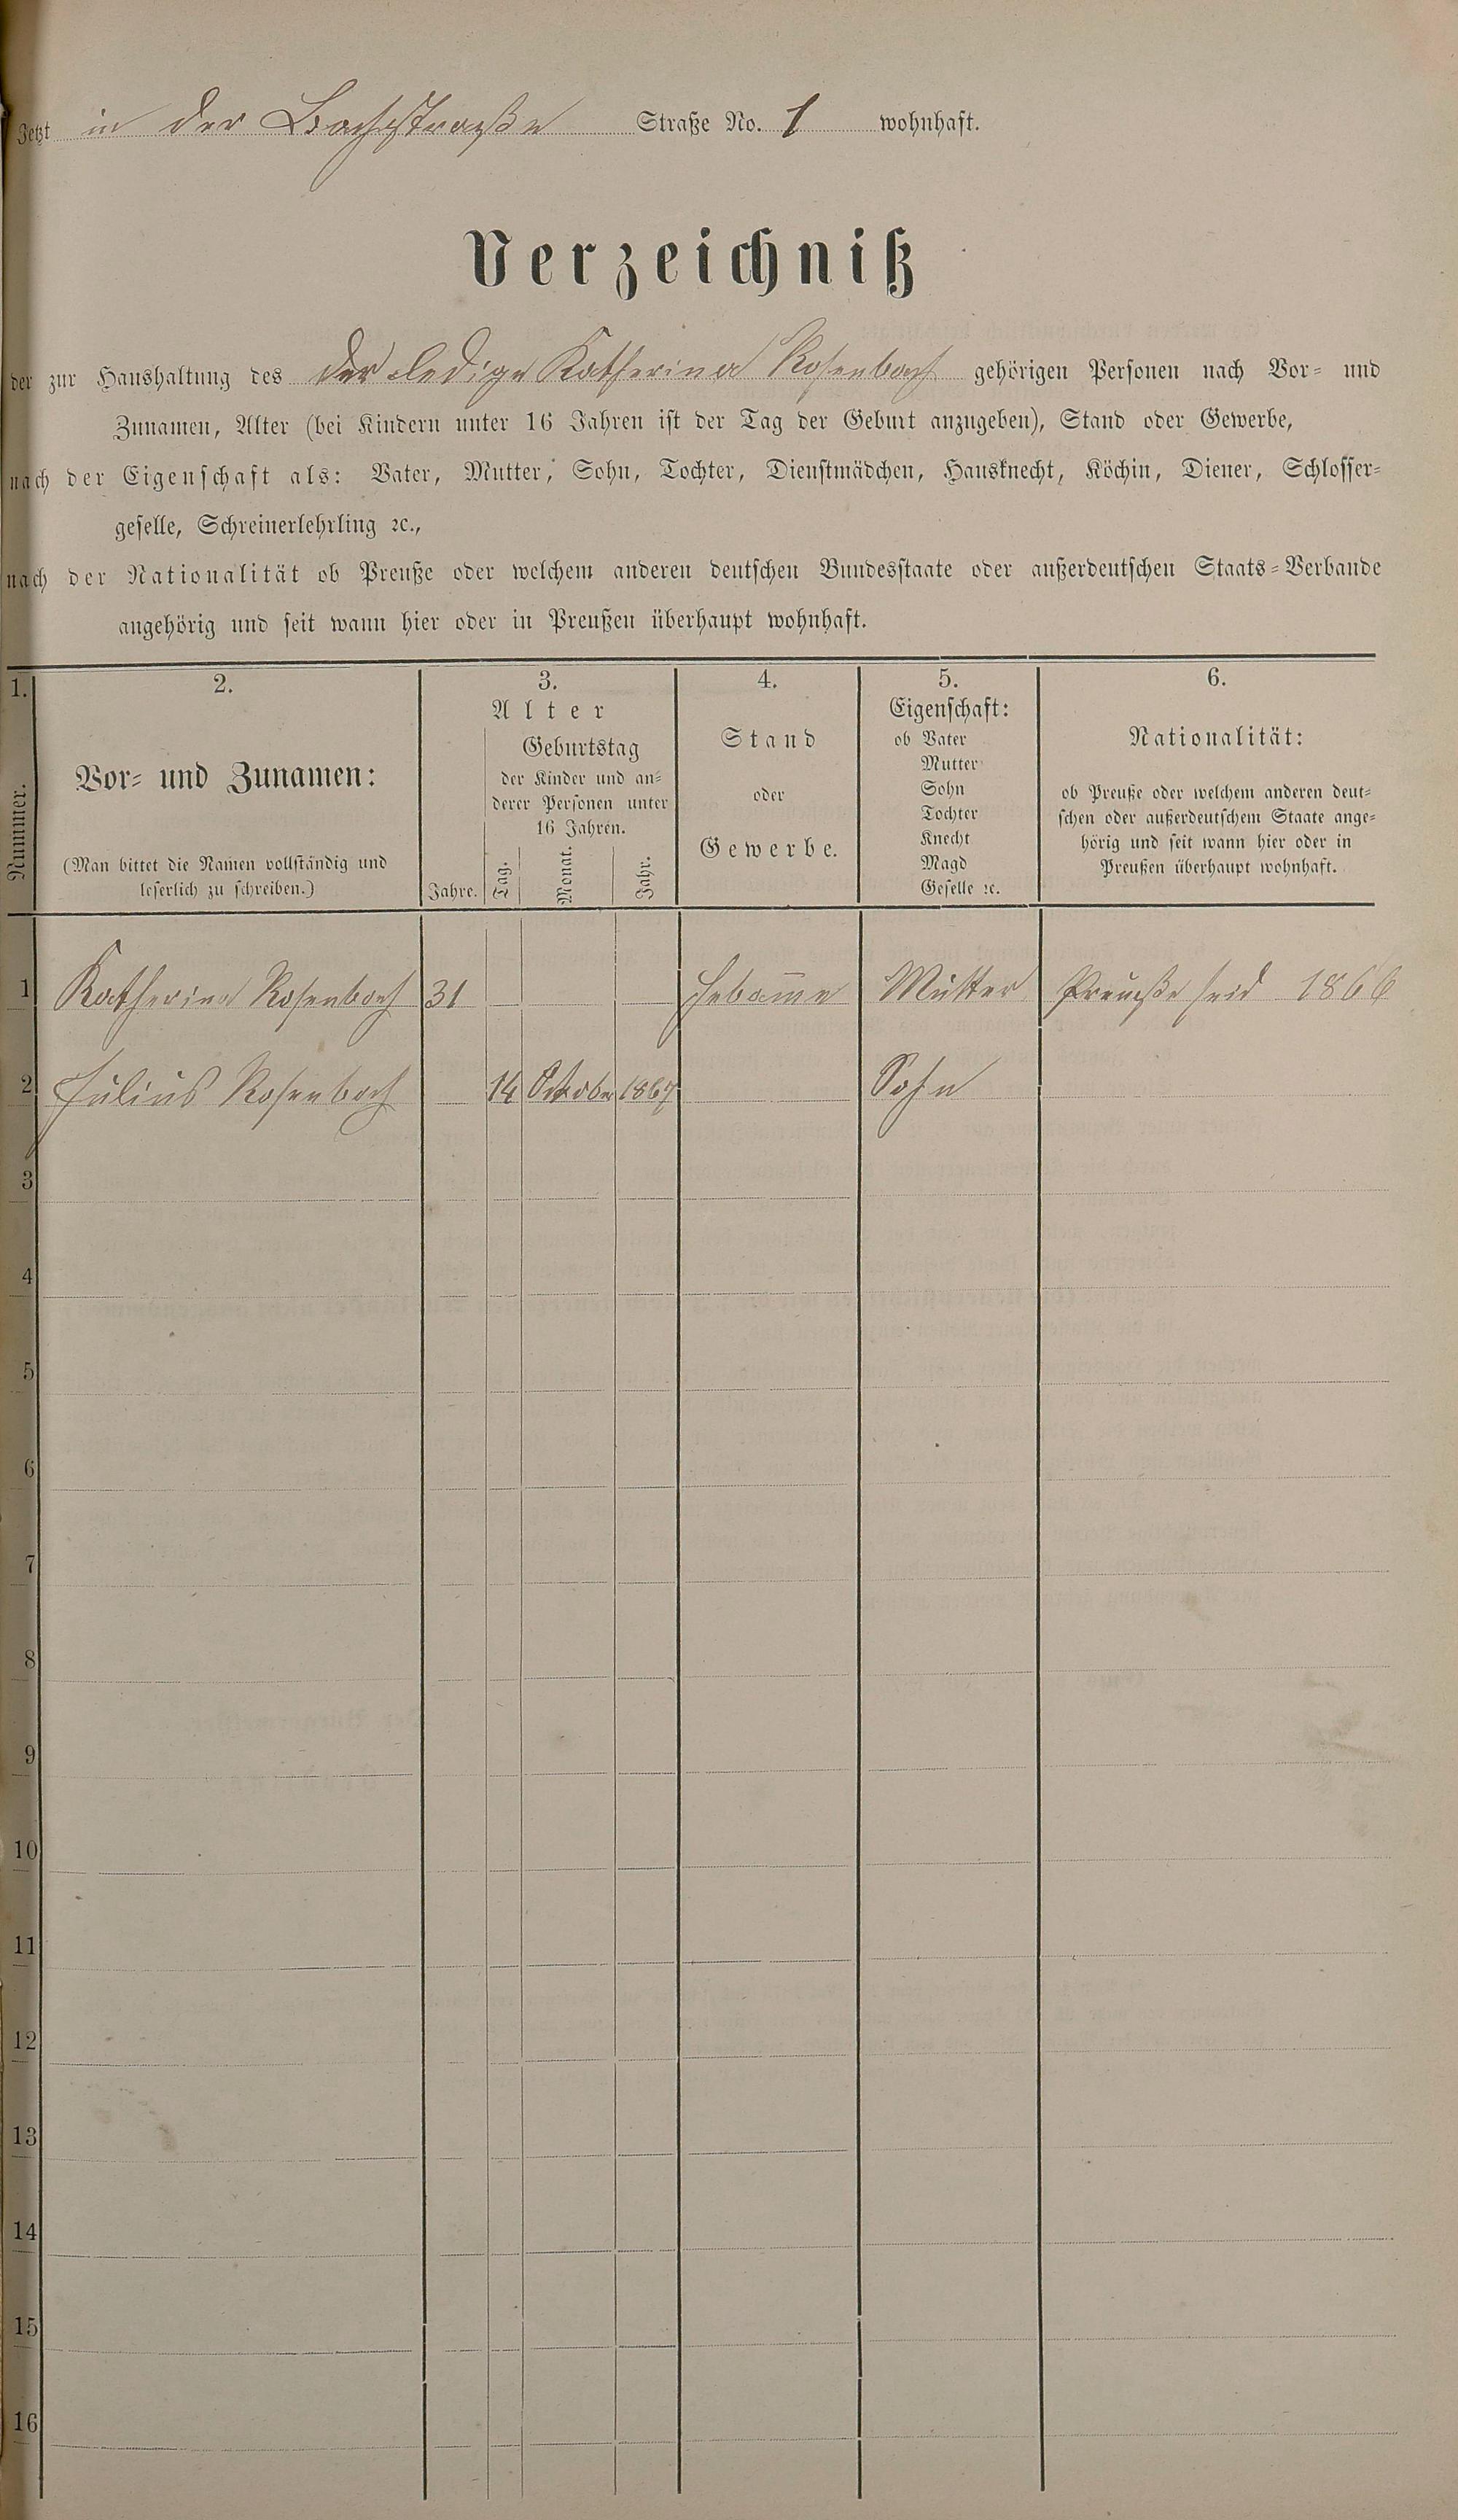 Jetzt in der Bachstraße Straße No. 1 wohnhaft.
Verzeichniß
der zur Haushaltung des der ledige Katherina Rosenbach gehörigen Personen nach Vor- und
Zunamen, Alter (bei Kindern unter 16 Jahren ist der Tag der Geburt anzugeben), Stand oder Gewerbe,
nach der Eigenschaft als: Vater, Mutter, Sohn, Tochter, Dienstmädchen, Hausknecht, Köchin, Diener, Schlosser-
geselle, Schreinerlehrling ꝛc.,
nach der Nationalität ob Preuße oder welchem anderen deutschen Bundesstaate oder außerdeutschen Staats-Verbande
angehörig und seit wann hier oder in Preußen überhaupt wohnhaft.
1.
Nummer.
2.
Vor- und Zunamen:
(Man bittet die Namen vollständig und
leserlich zu schreiben.)
3.
Alter
Jahre.
Geburtstag
der Kinder und an-
derer Personen unter
16 Jahren.
Tag.
Monat.
Jahr.
4.
Stand
oder
Gewerbe.
5.
Eigenschaft:
ob Vater
Mutter
Sohn
Tochter
Knecht
Magd
Geselle ꝛc.
6.
Nationalität:
ob Preuße oder welchem anderen deut-
schen oder außerdeutschem Staate ange-
hörig und seit wann hier oder in
Preußen überhaupt wohnhaft.
1 Katherina Rosenbach 31 Hebam̅e Mutter Preuße seid 1866
2 Julius Rosenbach 14 October 1867 Sohn
3
4
5
6
7
8
9
10
11
12
13
14
15
16